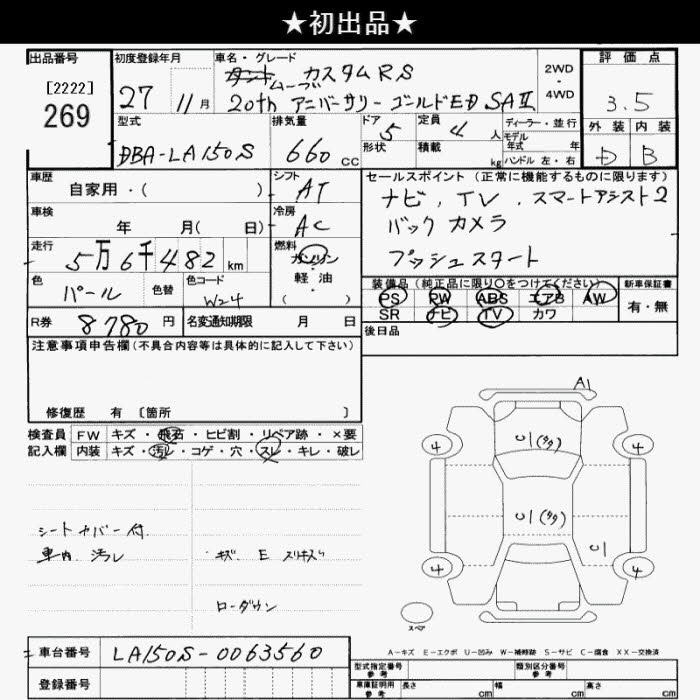 ★初出品★
出品番号
[2222]
269
初度登録年月
27 11月
車名・グレード
ムーブ カスタムRS
20th アニバーサリーゴールドED SAⅡ
2WD
・
4WD
評価点
3.5
外装 内装
D B
型式
DBA-LA150S
排気量
660 cc
ドア
5
形状
定員
4 人
積載
kg
ディーラー・並行
モデル
年式 年
ハンドル 左・右
車歴
自家用・( )
シフト
AT
車検
年 月( 日)
冷房
AC
走行
5万6千482 km
燃料
ガソリン
軽油
( )
色
パール
色替
色コード
W24
R券
8780 円
名変通知期限 月 日
セールスポイント(正常に機能するものに限ります)
ナビ, TV, スマートアシスト2
バックカメラ
プッシュスタート
装備品(純正品に限り○をつけてください)
PS PW ABS エアB AW
SR ナビ TV カワ
新車保証書
有・無
後日品
注意事項申告欄(不具合内容等は具体的に記入して下さい)
修復歴 有 〔箇所 〕
検査員
記入欄
FW キズ・飛石・ヒビ割・リペア跡・×要
内装 キズ・汚レ・コゲ・穴・スレ・キレ・破レ
シートカバー付
車内 汚レ
キズ E スリキズ
ローダウン
A1
4 4
U1(タタ)
U1(タタ)
U1
4 4
スペア
A-キズ E-エクボ U-凹み W-補修跡 S-サビ C-腐食 XX-交換済
車台番号
LA150S-0063560
登録番号
型式指定番号
参考
類別区分番号
参考
車庫証明用
参考
長さ cm 幅 cm 高さ cm